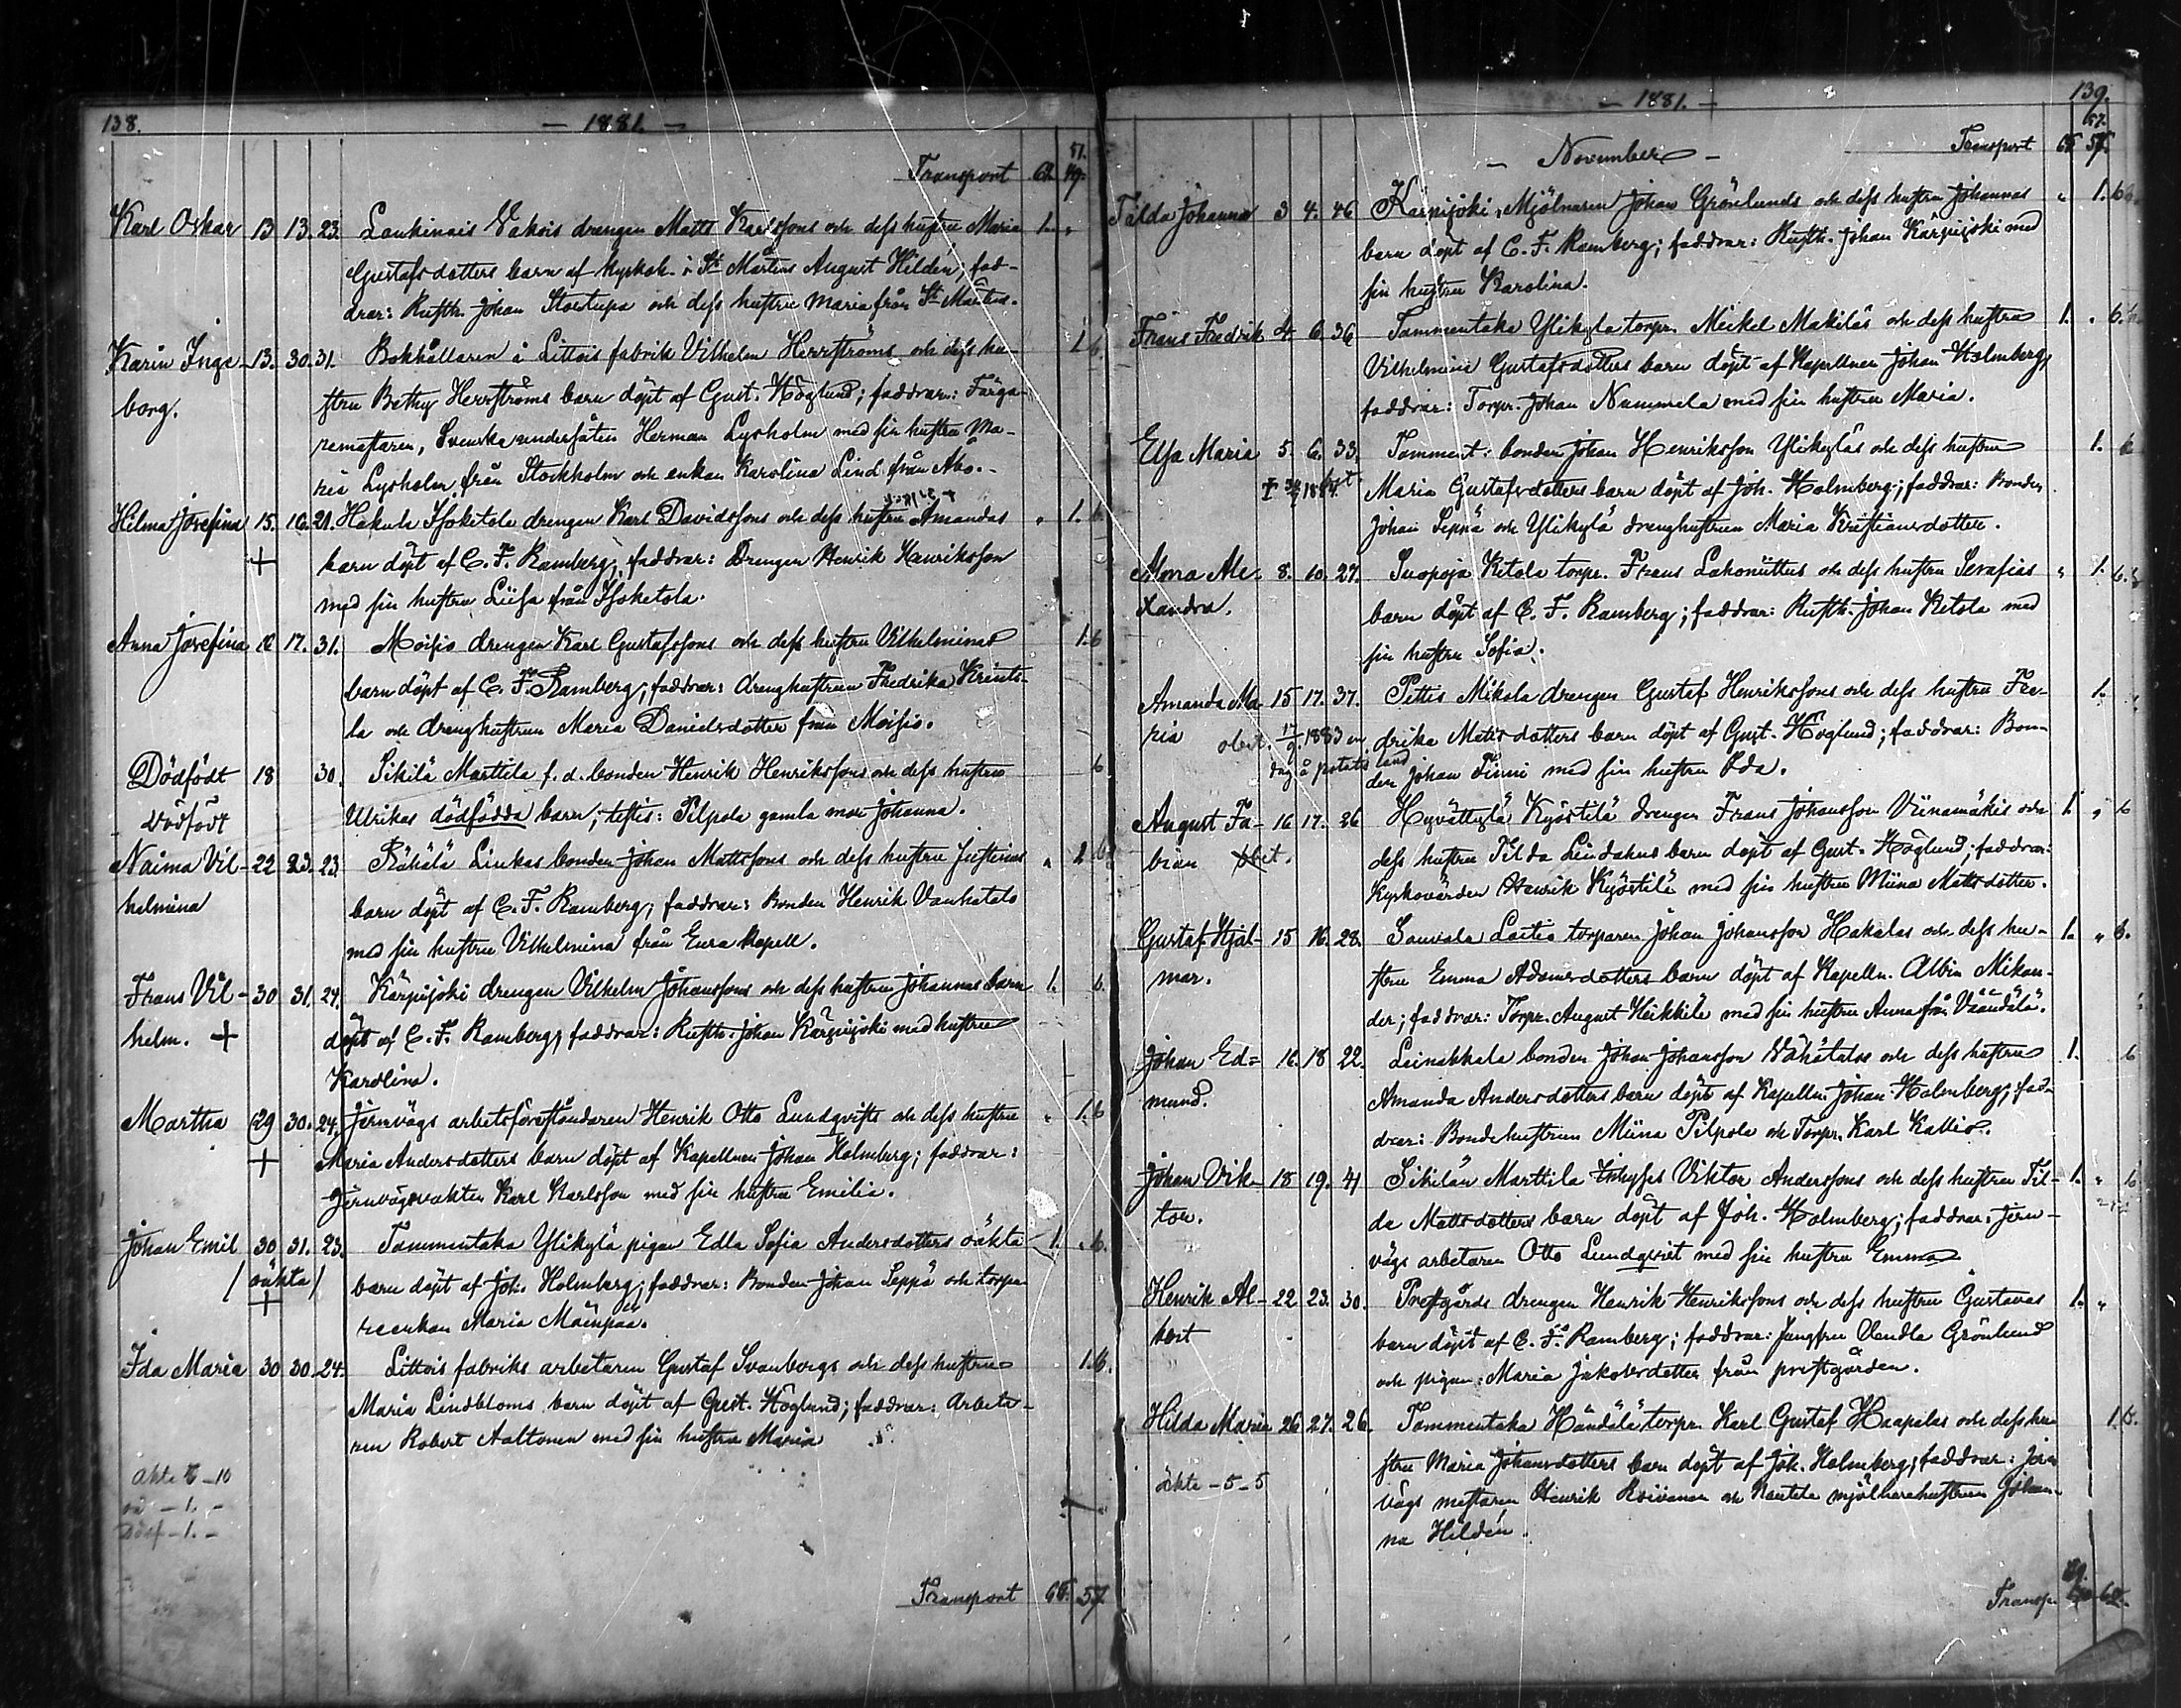 138.
- 1881. -
51.
Transport 49.
Karl Oskar 13 13. 23. Laukinais Vakois drengen Matts Karlssons och dess hustru Maria 1. "
Gustafsdotters barn af kyrkoh. i St Mårtens August Hildén; fad-
drar: Rusth. Johan och dess hustru Maria från St Mårtens.
Karin Inge- 13. 30. 31. Bokhållaren å Littois fabrik Vilhelm Herrströms och dess hu- 1 6
borg. stru Bethy Herrströms barn döpt af Gust. Höglund; faddrar: Färga-
remästaren, Svenska undersåten Herman Lysholm med sin hustru Ma-
ria Lysholm från Stockholm och enkan Karolina Lind från Åbo.-
Hilma Josefina 15. 16. 21. Hakula Isoketola drengen Karl Davidssons och dess hustru Amandas " 1. 6
+ barn döpt af C. F. Ramberg; faddrar: Drengen Henrik Henriksson
med sin hustru Liisa från Isoketola.
Anna Josefina 16 17. 31. Moisio drengen Karl Gustafssons och dess hustru Vilhelminas 1. 6
barn döpt af C. F. Ramberg; faddrar: drenghustrun Fredrika
la och drenghustrun Maria Danielsdotter från Moisio.
Dödfödt 18 30. Sikilä Marttila f. d. bonden Henrik Henrikssons och dess hustru 6
dödfödt Ulrikas dödfödda barn; testis: Pilpola gamla mor Johanna.
Naima Vil- 22 23. 23 Rähälä Liukas bonden Johan Mattssons och dess hustru Justinas " 1 6
helmina barn döpt af C. F. Ramberg; faddrar: Bonden Henrik Vanhatalo
med sin hustru Vilhelmina från Eura kapell.
Frans Vil- 30 31. 24. Kärpijoki drengen Vilhelm Johanssons och dess hustru Johannas barn 1. 6.
helm. + döpt af C. F. Ramberg; faddrar: Rusth. Johan Kärpijoki med hustru
Karolina.
Martha 29 30. 24. Jernvägs arbetsförestöndaren Henrik Otto Lundqvists och dess hustru " 1. 6
+ Maria Andersdotters barn döpt af Kapellnen Johan Holmberg; faddrar:
Jernvägsvakten Karl Karlsson med sin hustru Emilia.
Johan Emil 30 31. 23. Tammentaka Ylikylä pigan Edla Sofia Andersdotters oäkta 1. " 6.
/ oäkta / barn döpt af Joh. Holmberg; faddrar: Bonden Johan Seppä och torpa-
+ reenkan Maria Mäenpää.
Ida Maria 30 30. 24. Littois fabriks arbetaren Gustaf Svanbergs och dess hustru 1. 6.
Maria Lindbloms barn döpt af Gust. Höglund; faddrar: Arbeta-
ren Robert Aaltonen med sin hustru Maria
oä - 1. -
Dödf - 1. -
Transport 65. 57
139.
- 1881. -
57.
- November - Transport 65
Tilda Johanna 3 4. 46 Kärpijoki Mjölnaren Johan Grönlunds och dess hustru Johannas " 1. 6
barn döpt af C. F. Ramberg; faddrar: Rusth. Johan Kärpijoki med
sin hustru Karolina.
Frans Fredrik 4. 6. 36 Tammentaka Ylikylä torpr. Mickel Mäkiläs och dess hustru 1. " 6.
Vilhelmina Gustafsdotters barn döpt af Kapellnen Johan Holmberg,
faddrar: Torpr. Johan Nummela med sin hustru Maria.
Elsa Maria 5. 6. 33. Tamment: bonden Johan Henriksson Ylikyläs och dess hustru 1. 6
Maria Gustafsdotters barn döpt af Joh. Holmberg; faddrar: Bonden
Johan Seppä och Ylikylä drenghustrun Maria Kristiansdotter.
Mona Ale- 8. 10. 27. Suopoja Ketola torpr. Frans Lakoniittus och dess hustru Serafias " 1. 6.
xandra. barn döpt af C. F. Ramberg; faddrar: Rusth. Johan Ketola med
sin hustru Sofia.
Amanda Ma- 15 17. 37. Pettis Mikola drengen Gustaf Henrikssons och dess hustru Fre- 1.
ria obiit. 17/9. 1883 en drika Matsdotters barn döpt af Gust. Höglund; faddrar: Bon-
dag å potatis land den Johan Finni med sin hustru Eda.
August Fa- 16 17. 26 Hyvättylä Kyöstilä drengen Frans Johansson Viinamäkis och 1. " 6
bian obiit. dess hustru Tilda Lindahus barn döpt af Gust. Höglund; faddrar:
Kyrkovärden Henrik Kyöstilä med sin hustru Miina Mattsdotter.
Gustaf Hjal- 15 16. 28. Sauvala Laitio torparen Johan Johansson Hakalas och dess hu- 1. " 6.
mar. stru Emma Adamsdotters barn döpt af Kapelln. Albin Mikan-
der; faddrar: Torpr. August Heikkilä med sin hustru Anna från Väändälä.
Johan Ed- 16. 18 22. Leinakkala bonden Johan Johansson Vähätalos och dess hustru 1. 6
mund. Amanda Andersdotters barn döpt af Kapelln. Johan Holmberg; fad-
drar: Bondehustrun Miina Pilpola och Torpr. Karl Kallio.
Johan Vik- 18 19. 41 Sikilän Marttila inhyses Viktor Anderssons och dess hustru Til- 1. " 6
tor. da Mattsdotters barn döpt af Joh. Holmberg; faddrar: Jern-
vägs arbetaren Otto Lundqvist med sin hustru Emma
Henrik Al- 22 23. 30. Prestgårds drengen Henrik Henrikssons och dess hustru Gustavas 1. "
bert barn döpt af C. F. Ramberg; faddrar: Jungfru Vendla Grönlund
och pigan Maria Jakobsdotter från prestgården.
Hilda Maria 26 27. 26. Tammentaka Händälä torpr. Karl Gustaf Haapalas och dess hu- 1. 6.
stru Maria Johansdotters barn döpt af Joh. Holmberg; faddrar: Jern
äkta - 5 - 5 vägs mästaren Henrik Koivunen och Rautela mjölnarehustrun Johan-
na Hildén.
Transp.